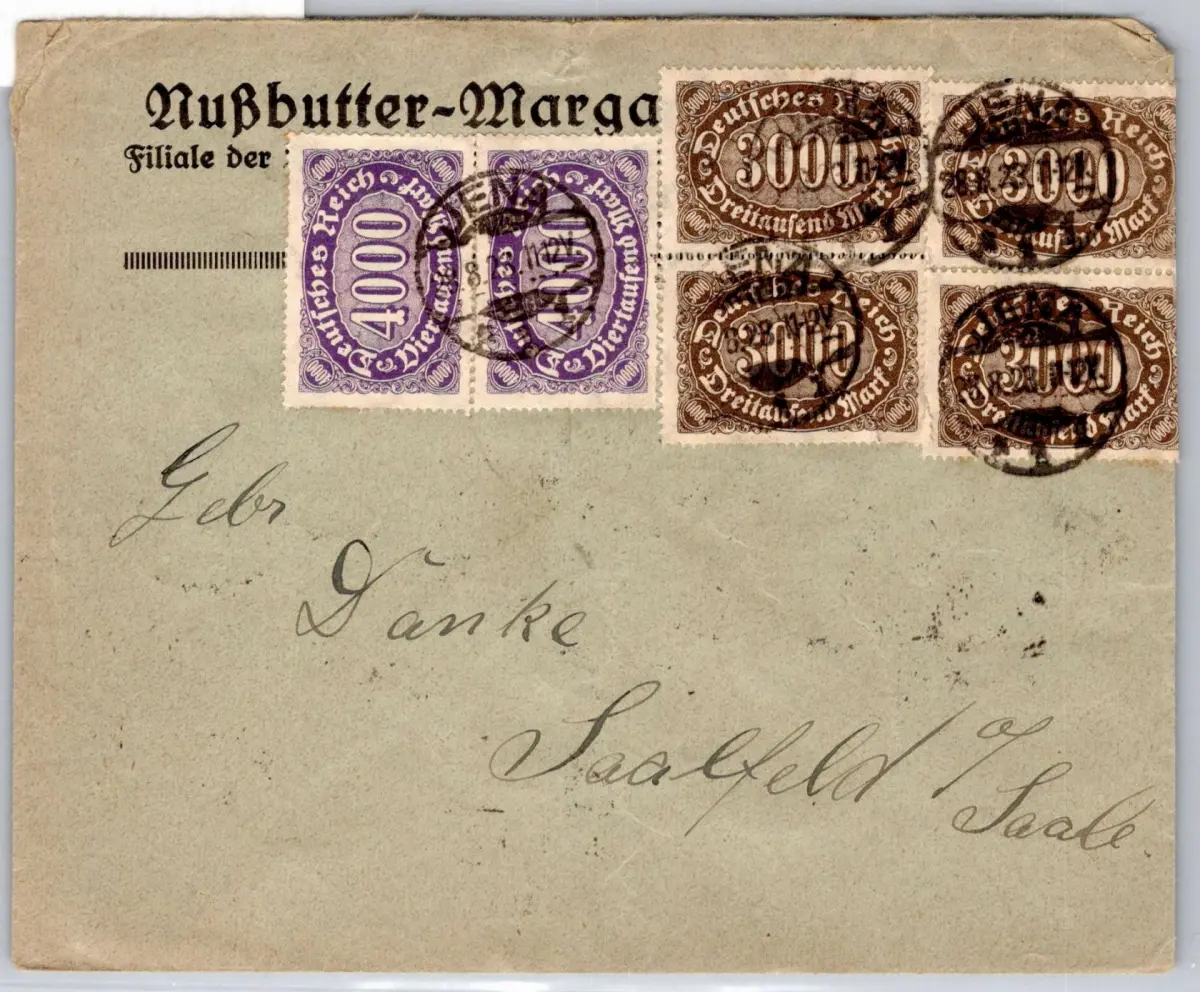 Nußbutter-Marga
Filiale der
Deutsches Reich
4000
Viertausend Mark
Deutsches Reich
4000
Viertausend Mark
Deutsches Reich
3000
Dreitausend Mark
Deutsches Reich
3000
Dreitausend Mark
Deutsches Reich
3000
Dreitausend Mark
Deutsches Reich
3000
Dreitausend Mark
JENA
JENA
JENA
JENA
JENA
Gebr
Dänke
Saalfeld a/
Saale